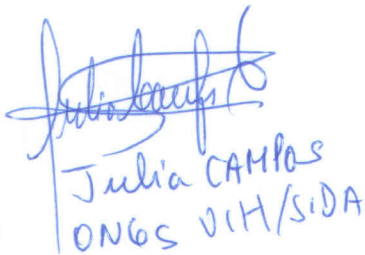 Julia CAMPOS
ONGS VIH/SIDA